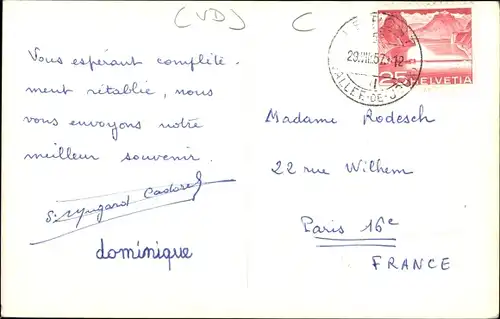 (VD)
C
Vous espérant complète-
ment rétablie, nous
vous envoyons notre
meilleur souvenir.
dominique
29.VIII.57.-12
VALLEE-DE-JOUX
25 HELVETIA
Madame Rodesch
22 rue Wilhem
Paris 16e
FRANCE